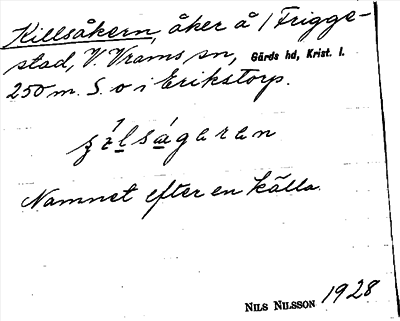 Killsåkern, åker å 1 Frigge-
stad, V. Vrams sn, Gärds hd, Krist. l.
250 m. S. o i Erikstorp.
Namnet efter en källa.
NILS NILSSON 1928